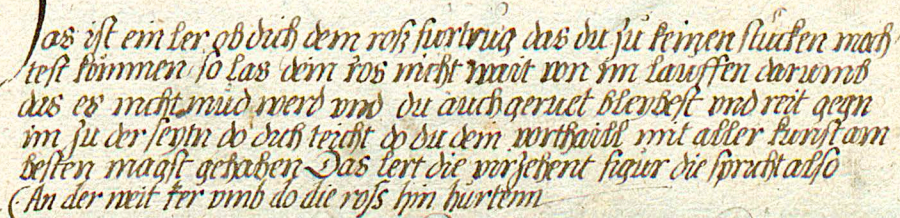 Das ist ein ler ob dich dein roß furtrug das du zu keinen stucken moch
test kommen so las dein ros nicht wait von im lauffen darumb
das es nicht mud werd vnd du auch geruet bleybest vnd reit gegn
im zu der seytn do dich teicht do du dein vorthaill mit aller kunst am
besten magst gehaben Das lert die virzehent figur die spricht also
An der weit ker vmb do die ross hin hurtenn